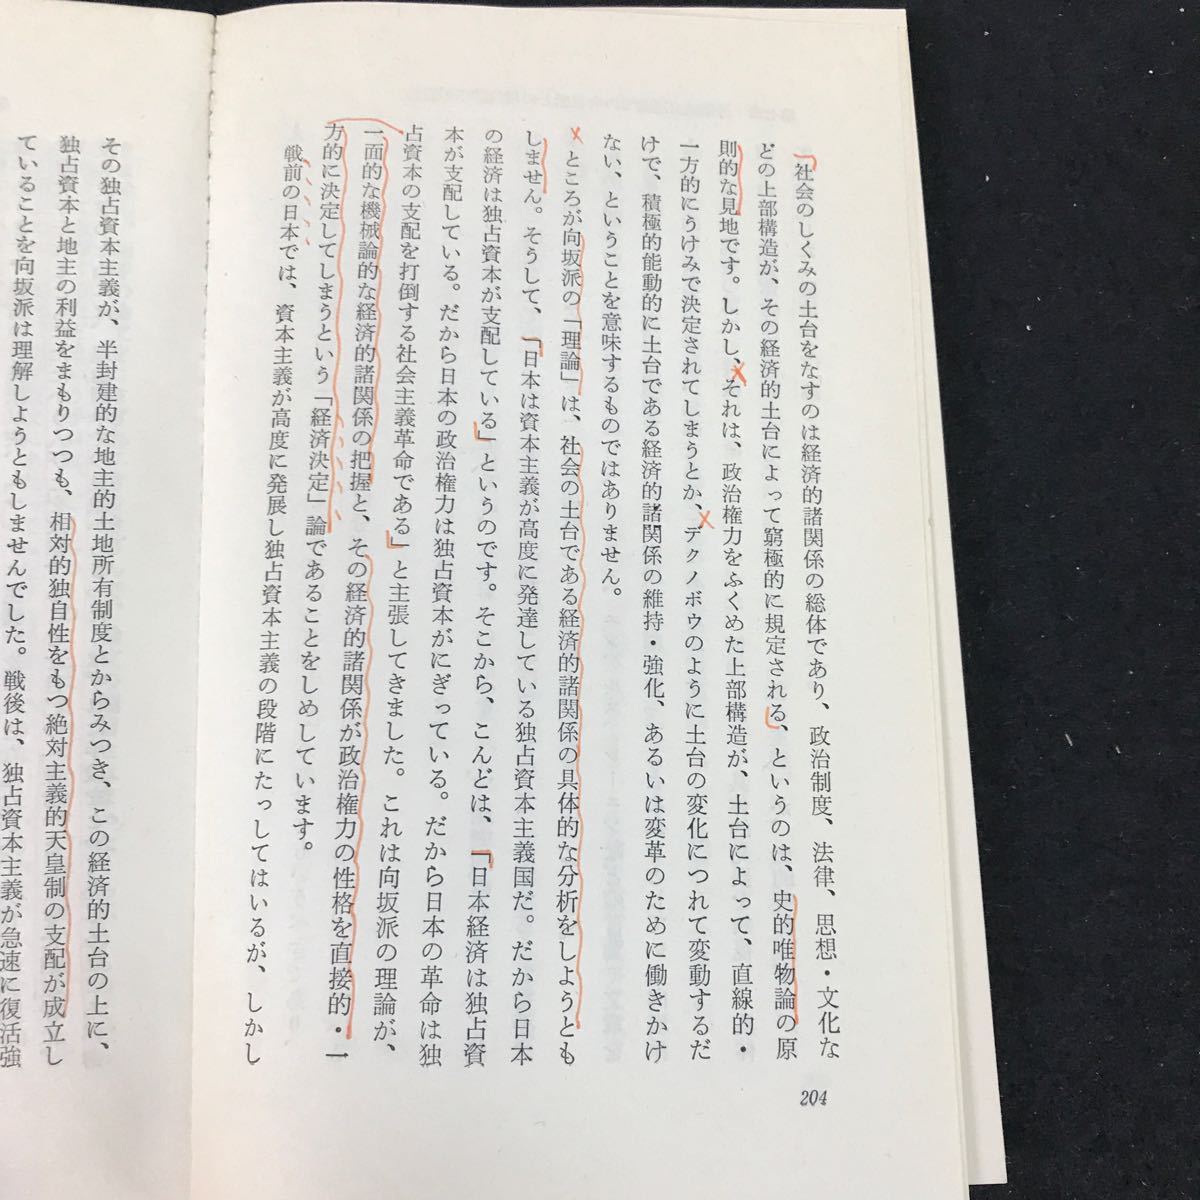 社会のしくみの土台をなすのは経済的諸関係の総体であり、政治制度、法律、思想・文化な
どの上部構造が、その経済的土台によって窮極的に規定される、というのは、史的唯物論の原
則的な見地です。しかし、それは、政治権力をふくめた上部構造が、土台によって、直線的・
一方的にうけみで決定されてしまうとか、デクノボウのように土台の変化につれて変動するだ
けで、積極的能動的に土台である経済的諸関係の維持・強化、あるいは変革のために働きかけ
ない、ということを意味するものではありません。
ところが向坂派の「理論」は、社会の土台である経済的諸関係の具体的な分析をしようとも
しません。そうして、「日本は資本主義が高度に発達している独占資本主義国だ。だから日本
の経済は独占資本が支配している」というのです。そこから、こんどは、「日本経済は独占資
本が支配している。だから日本の政治権力は独占資本がにぎっている。だから日本の革命は独
占資本の支配を打倒する社会主義革命である」と主張してきました。これは向坂派の理論が、
一面的な機械論的な経済的諸関係の把握と、その経済的諸関係が政治権力の性格を直接的・一
方的に決定してしまうという「経済決定」論であることをしめしています。
戦前の日本では、資本主義が高度に発展し独占資本主義の段階にたっしてはいるが、しかし
204
その独占資本主義が、半封建的な地主的土地所有制度とからみつき、この経済的土台の上に、
独占資本と地主の利益をまもりつつも、相対的独自性をもつ絶対主義的天皇制の支配が成立し
ていることを向坂派は理解しようともしませんでした。戦後は、独占資本主義が急速に復活強